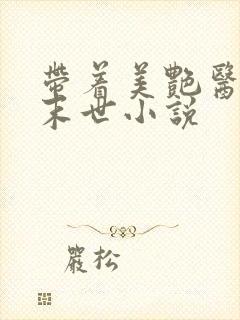 帶着美艷醫
末世小説
嚴松